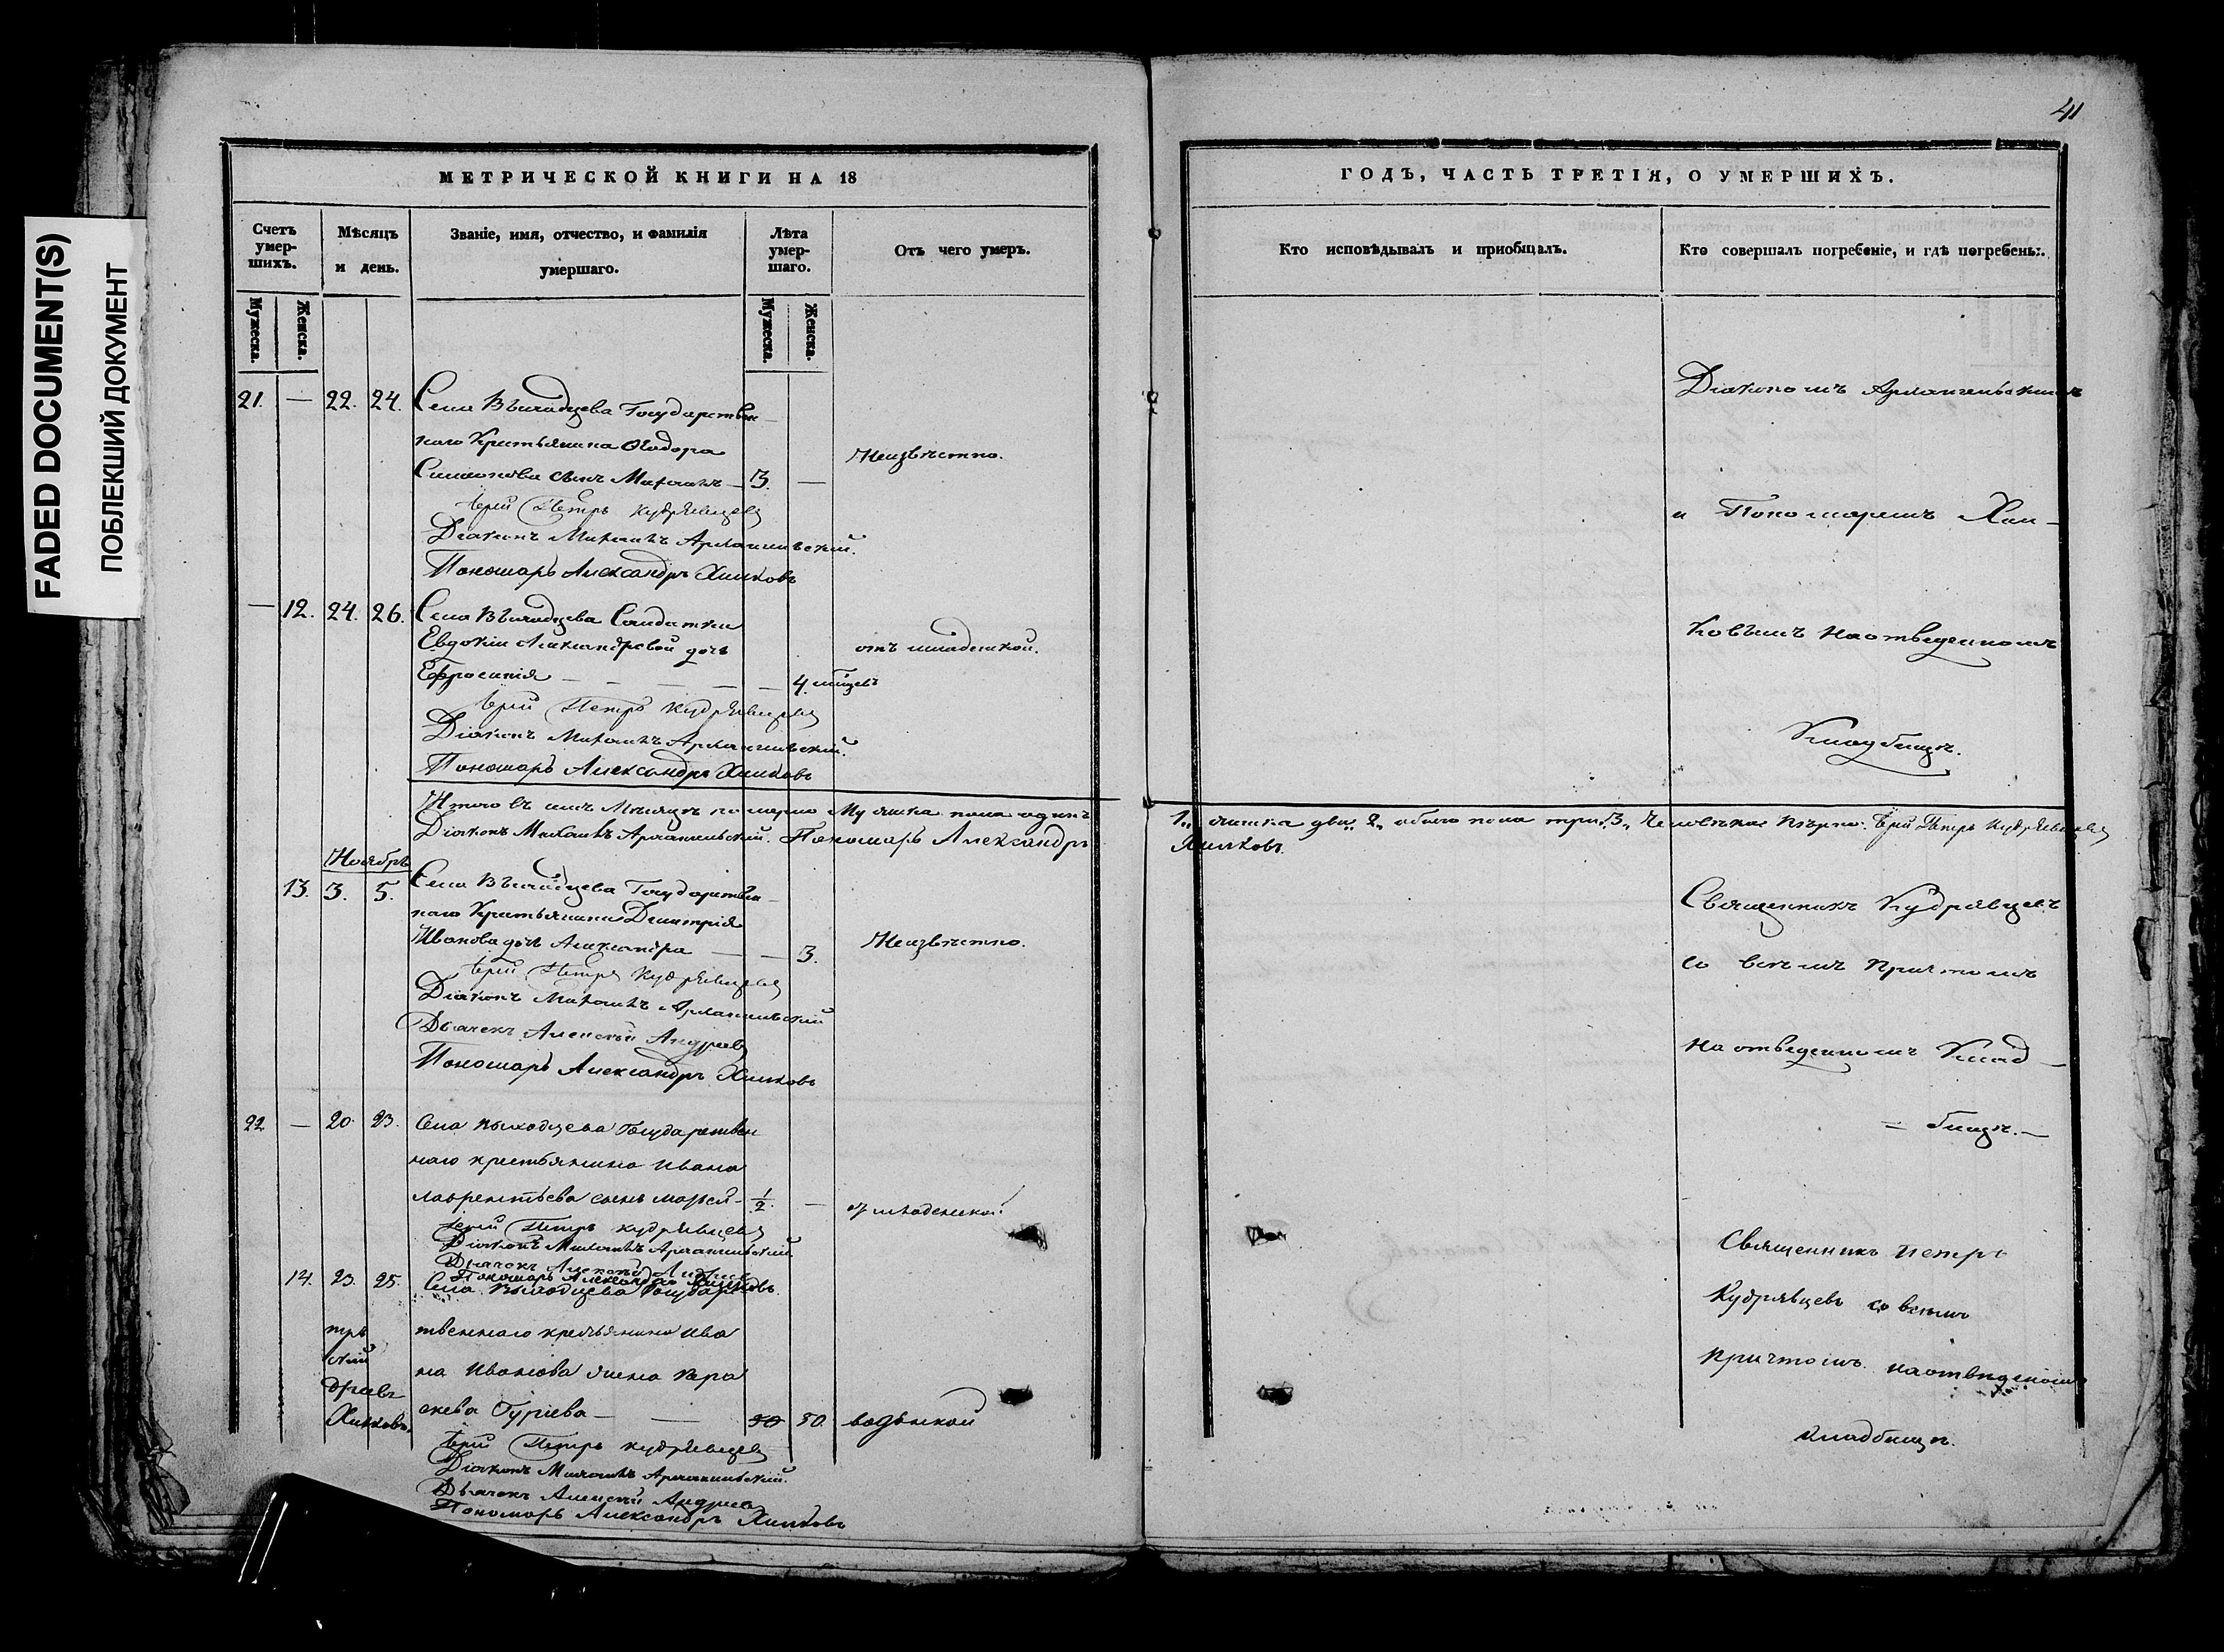 FADED DOCUMENT(S)
ПОБЛЕКШИЙ ДОКУМЕНТ
МЕТРИЧЕСКОЙ КНИГИ НА 18
Счетъ умер-шихъ.
Мѣсяцъ и день.
Званіе, имя, отчество, и фамилія умершаго.
Лѣта умер-шаго.
Отъ чего умеръ.
Мужеска.
Женска.
Мужеска.
Женска.
21. — 22. 24. Села Выходцева Государствен
наго Крестьянина Ѳеодора
Симионова сынъ Михаилъ — 3. —
Неизвѣстно.
Іерей Петръ Кудрявцевъ
Діаконъ Михаилъ Архангельскій.
Пономарь Александръ Хилковъ
— 12. 24. 26. Села Выходцева Солдатки
Евдокіи Александровой дочь
отъ младенской.
Ефросинія — — — — — — 4. мѣсяцевъ
Іерей Петръ Кудрявцевъ
Діаконъ Михаилъ Архангельскій.
Пономарь Александръ Хилковъ
Итого въ семъ Мѣсяцѣ померло Мужеска пола одинъ
Діаконъ Михаилъ Архангельскій. Пономарь Александръ
Ноябрь
13. 3. 5. Села Выходцева Государствен
наго Крестьянина Димитрія
Иванова дочь Александра — — 3.
Неизвѣстно.
Іерей Петръ Кудрявцевъ
Діаконъ Михаилъ Архангельскій
Дьячекъ Алексѣй Андреевъ
Пономарь Александръ Хилковъ
22 — 20. 23. Села Выходцева Государствен
наго крестьянина Ивана
Лаврентьева сынъ — 1/2. —
от младенской
Іерей Петръ Кудрявцевъ
Діаконъ Михаилъ Архангельскій
Дьячекъ Алексѣй Андреевъ
Пономарь Александръ Хилковъ
14. 23. 25. Села Выходцева Государс
твеннаго крестьянина Ива
на Иванова жена Пара
скева Гуріева — — 50 50. водяной
Хилковъ.
Іерей Петръ Кудрявцевъ
Діаконъ Михаилъ Архангельскій.
Дьячекъ Алексѣй Андреевъ
Пономарь Александръ Хилковъ
41
ГОДЪ, ЧАСТЬ ТРЕТІЯ, О УМЕРШИХЪ.
Кто исповѣдывалъ и пріобщалъ.
Кто совершалъ погребеніе, и гдѣ погребены.
Діакономъ Архангельскимъ
и Пономаремъ Хил-
ковымъ на отведенномъ
Кладбищѣ.
1„ женска два„ 2„ обоего пола три„ 3„ Человѣка Вѣрно: Іерей Петръ Кудрявцевъ
Хилковъ.
Священникъ Кудрявцевъ
со всѣмъ Причтомъ
на отведенномъ Клад —
= бищѣ. —
Священникъ Петръ
Кудрявцевъ со всѣмъ
Причтомъ на отведеномъ
кладбищѣ.